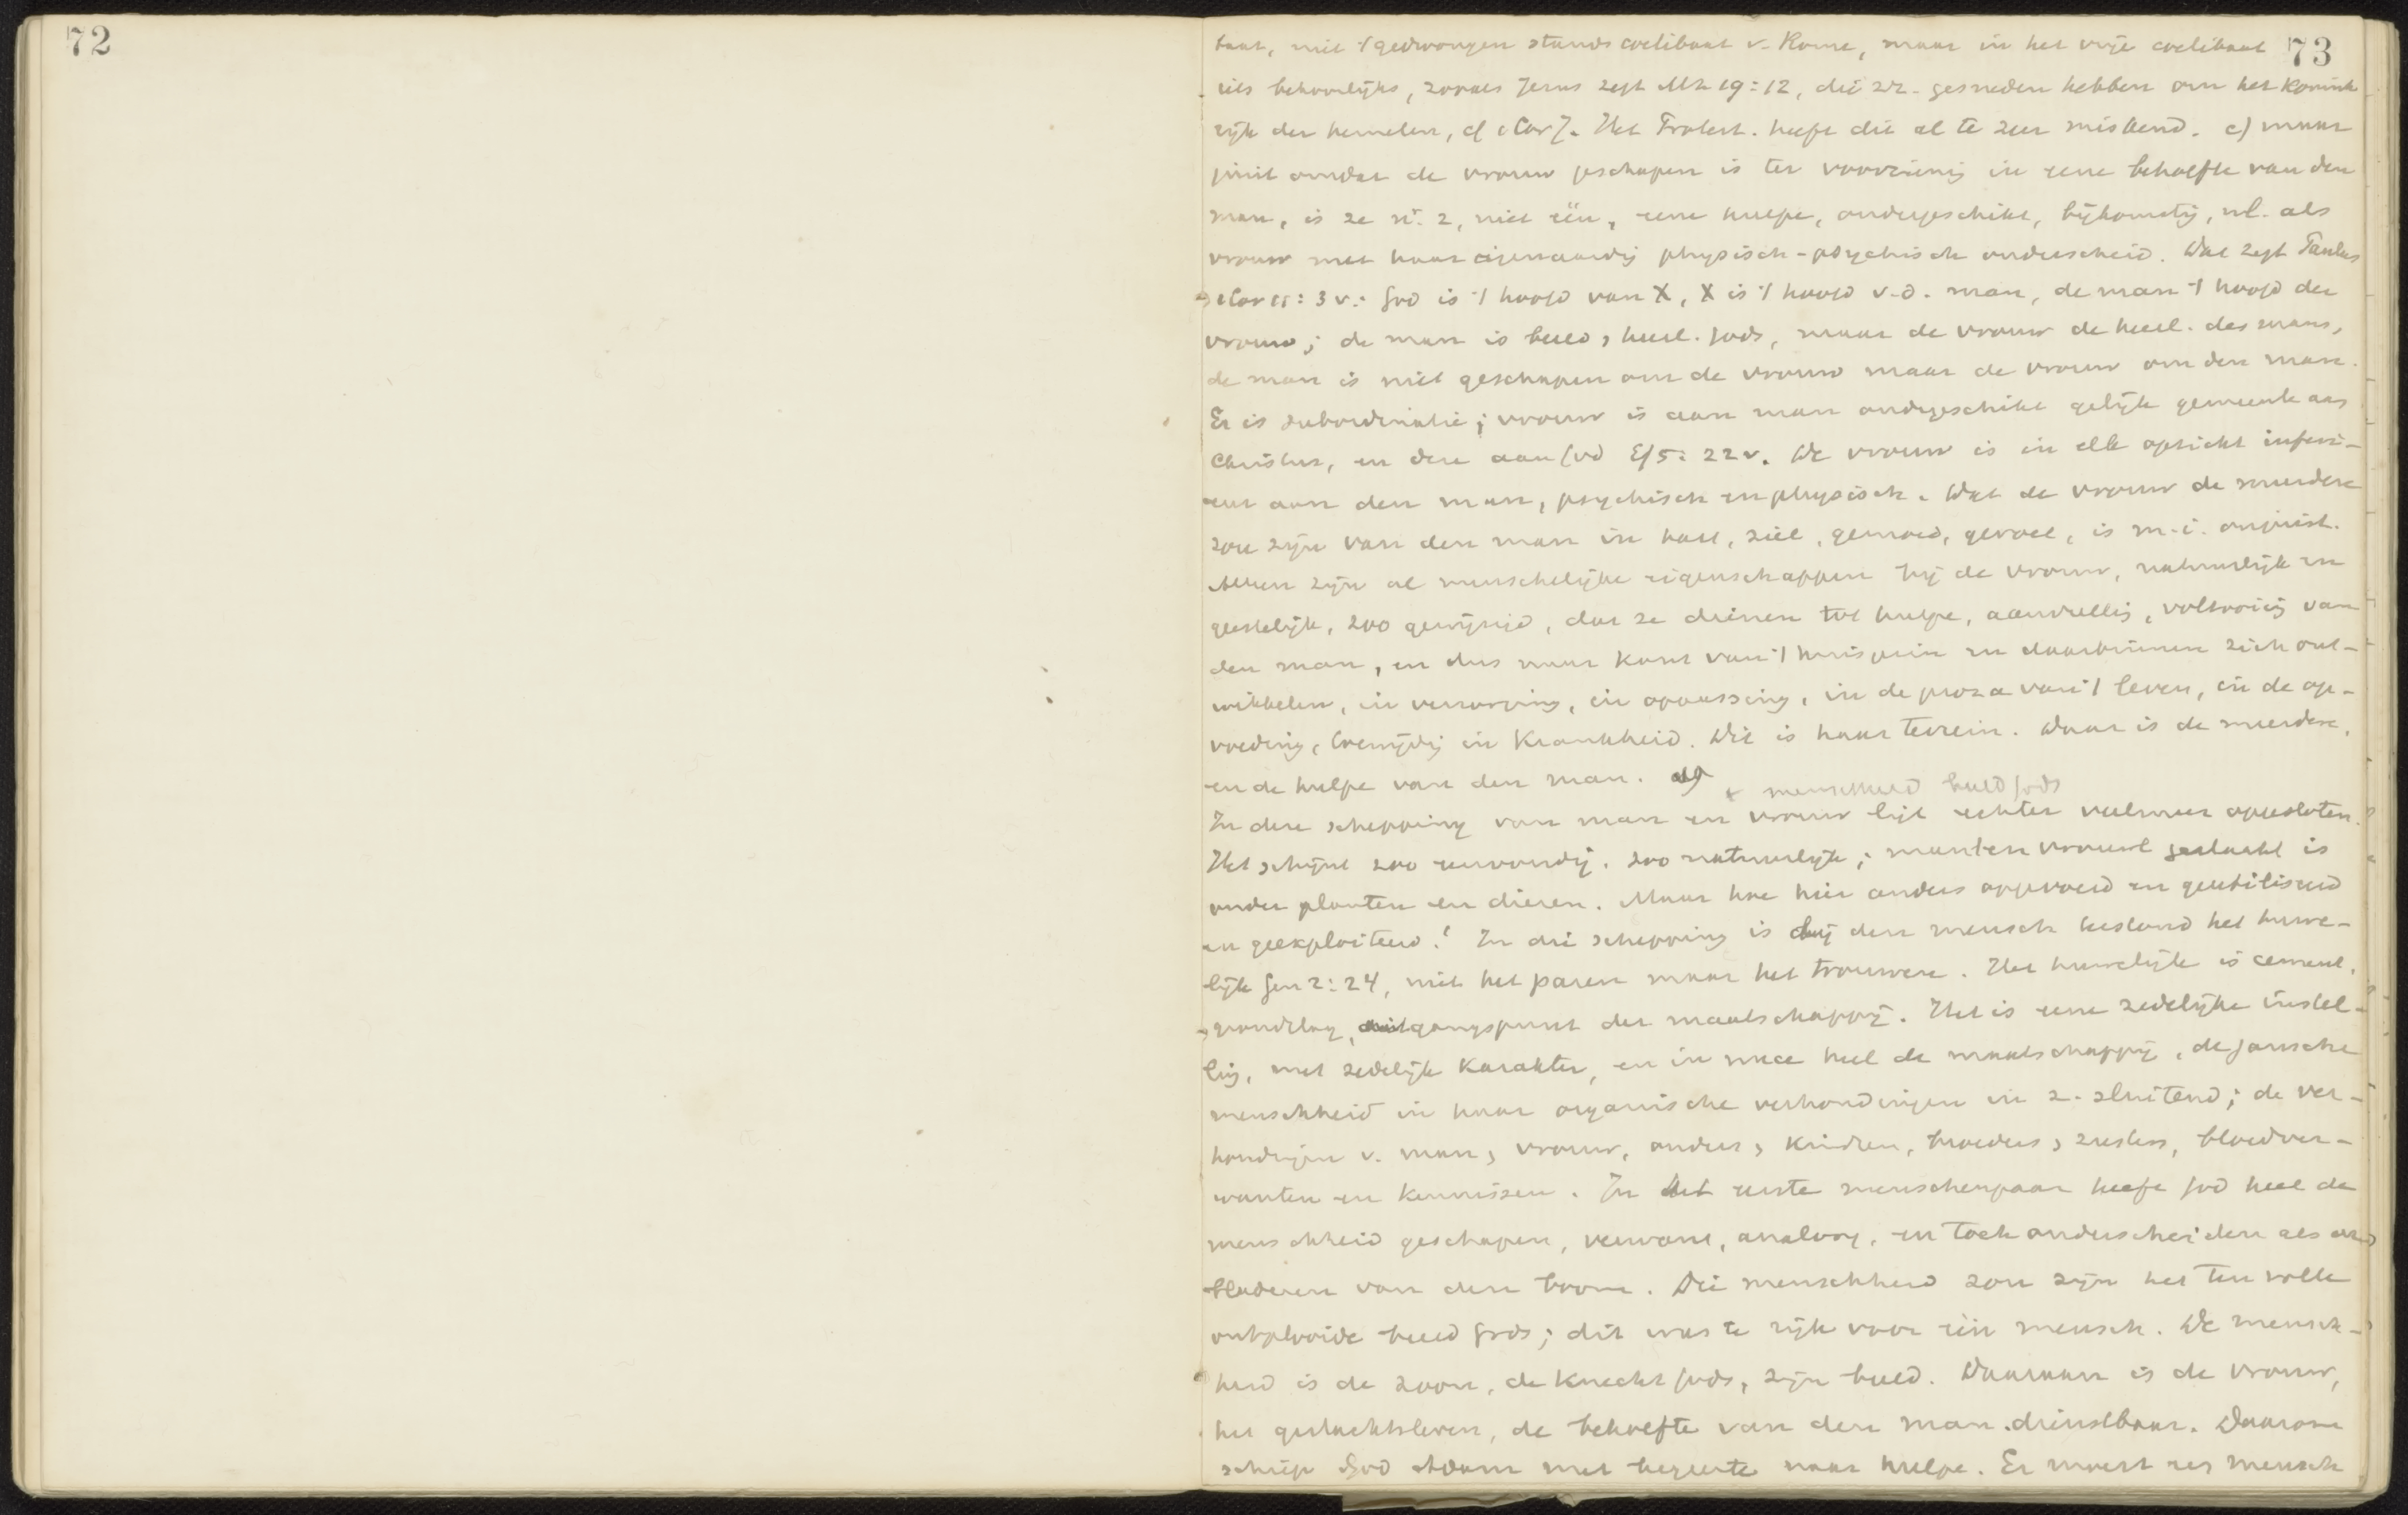 72
73
baat, niet 't gedwongen stands coelibaat v. Rome, maar in het vrije coelibaat
iets behoorlijks, zooals Jezus zegt Mt 19:12, die zich gesneden hebben om het Konink
rijk der hemelen, cf 1 Cor 7. Het Protest. heeft dit al te zeer miskend. c) maar
juist omdat de vrouw geschapen is ter voorziening in eene behoefte van den
man, is ze nr. 2, niet één, eene hulpe, ondergeschikt, bijkomstig, nl. als
vrouw met haar eigenaardig physisch-psychisch onderscheid. Wat zegt Paulus
1 Cor 11:3 v.: God is 't hoofd van X, X is 't hoofd v.d. man, de man 't hoofd der
vrouw; de man is beeld, heerl. Gods, maar de vrouw de heerl. des mans,
de man is niet geschapen om de vrouw maar de vrouw om den man.
Er is subordinatie; vrouw is aan man ondergeschikt gelijk gemeente aan
Christus, en deze aan God Ef 5:22 v. De vrouw is in elk opzicht inferi-
eur aan den man, psychisch en physisch. Dat de vrouw de meerdere
zou zijn van den man in hart, ziel, gemoed, gevoel, is m.i. onjuist.
Alleen zijn al menschelijke eigenschappen bij de vrouw, natuurlijk en
geestelijk, zoo gewijzigd, dat ze dienen tot hulpe, aanvulling, voltooiing van
den man, en dus naar kant van 't huisgezin en daarbinnen zich ont-
wikkelen, in verzorging, in oppassing, in de proza van 't leven, in de op-
voeding, lavenis in krankheid. Dit is haar terrein. Daar is de meerdere,
en de hulpe van den man. d)
+ menschheid beeld Gods
In deze schepping van man en vrouw ligt echter veel meer opgesloten.
Het schijnt zoo eenvoudig, zoo natuurlijk; man en vrouwl geslacht is
onder planten en dieren. Maar hoe hier anders opgevoed en geutiliseerd
en geëxploiteerd! In die schepping is bij den mensch bestand het huwe-
lijk Gen 2:24, niet het paren maar het trouwen. Het huwelijk is cement,
grondslag, uitgangspunt der maatschappij. Het is eene zedelijke instel-
ling, met zedelijk karakter, en in nuce heel de maatschappij, de gansche
menschheid in haar organische verhoudingen in z. sluitend; de ver-
houdingen v. man, vrouw, ouders, kinderen, broeders, zusters, bloedver-
wanten en kennissen. In het eerste menschenpaar heeft God heel de
menschheid geschapen, verwant, analoog, en toch onderscheiden als
bladeren van den boom. Die menschheid zou zijn het ten volle
ontplooide beeld Gods; dit was te rijk voor één mensch. De mensch-
heid is de zoon, de knecht Gods, zijn beeld. Daaraan is de vrouw,
het geslachtsleven, de behoefte van den man dienstbaar. Daarom
schiep God Adam met begeerte naar hulpe. Er moest een mensch